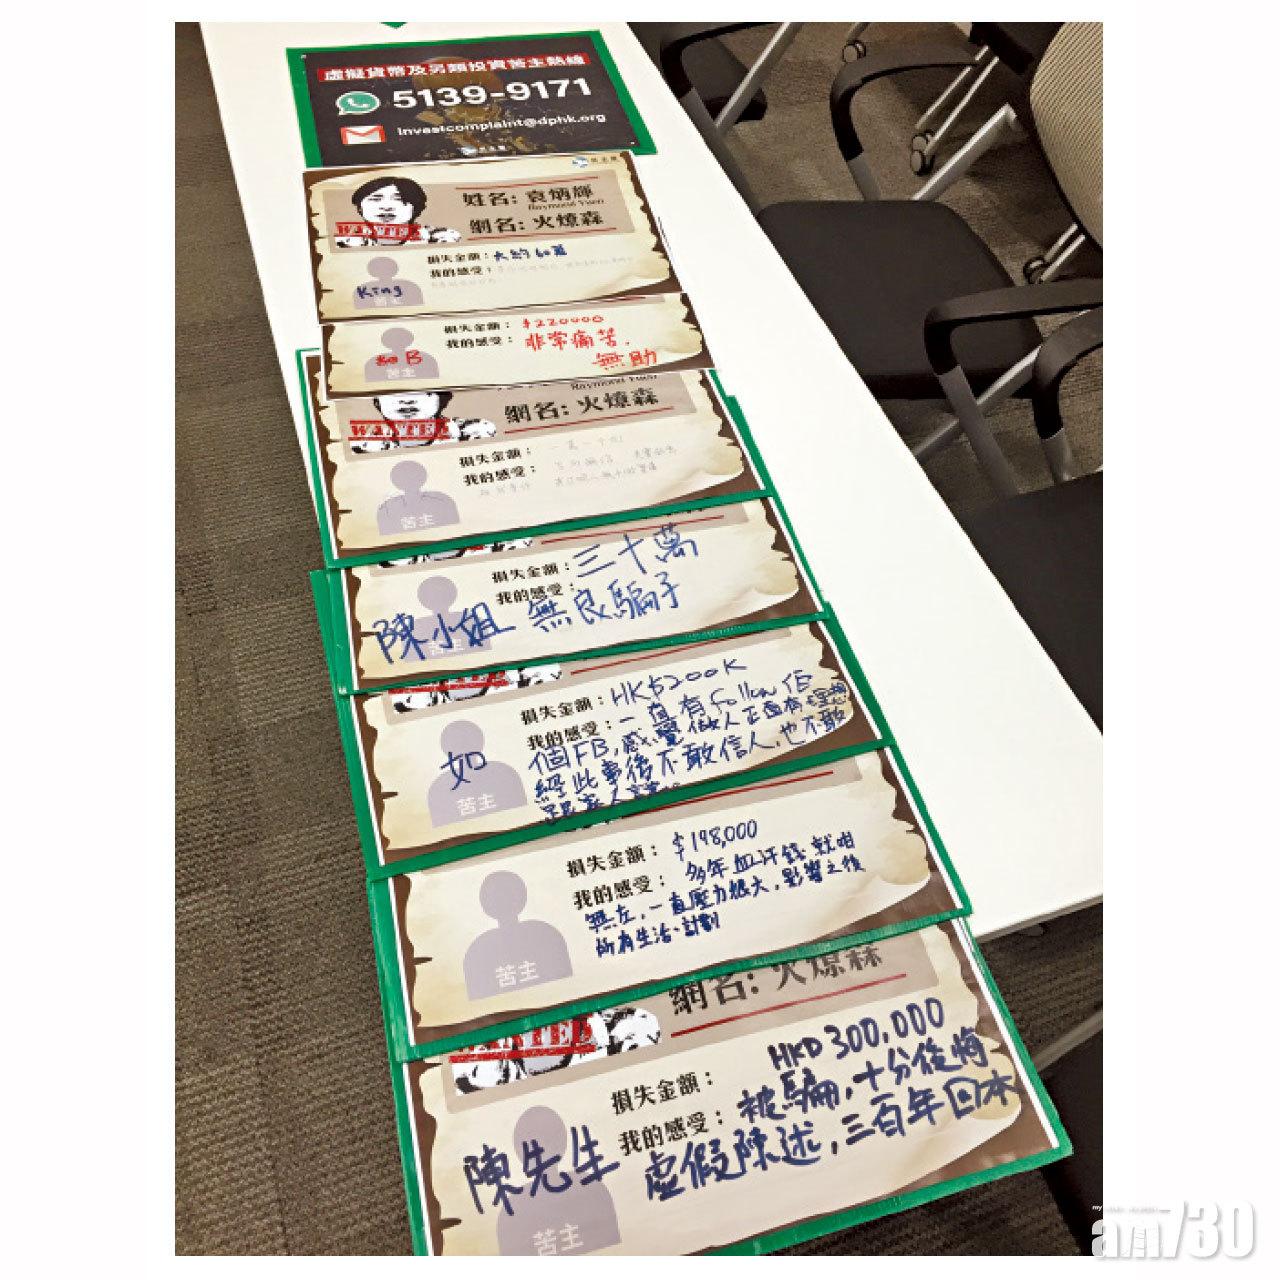 虛擬貨幣及另類投資苦主熱線
5139-9171
investcomplaint@dphk.org
民主黨
民主黨
姓名: 袁炳輝
Raymond Yuen
網名: 火燎森
WANTED
損失金額: 大約60萬
我的感受:
King
苦主
損失金額: $220000
我的感受: 非常痛苦.
無助
苦主
Raymond Yuen
網名: 火燎森
WANTED
損失金額:
我的感受:
苦主
損失金額: 三十萬
我的感受:
陳小姐 無良騙子
苦主
損失金額: HK$200K
我的感受: 一直有follow佢
個FB,感覺做人正面有理想
經此事後不敢信人,也不敢
如
苦主
損失金額: $198,000
我的感受: 多年血汗錢就咁
無左,一直壓力很大,影響之後
所有生活、計劃
苦主
網名: 火燎森
WANTED
損失金額: HKD 300,000
我的感受: 被騙,十分後悔
虛假陳述,三百年回本
陳先生
苦主
am730